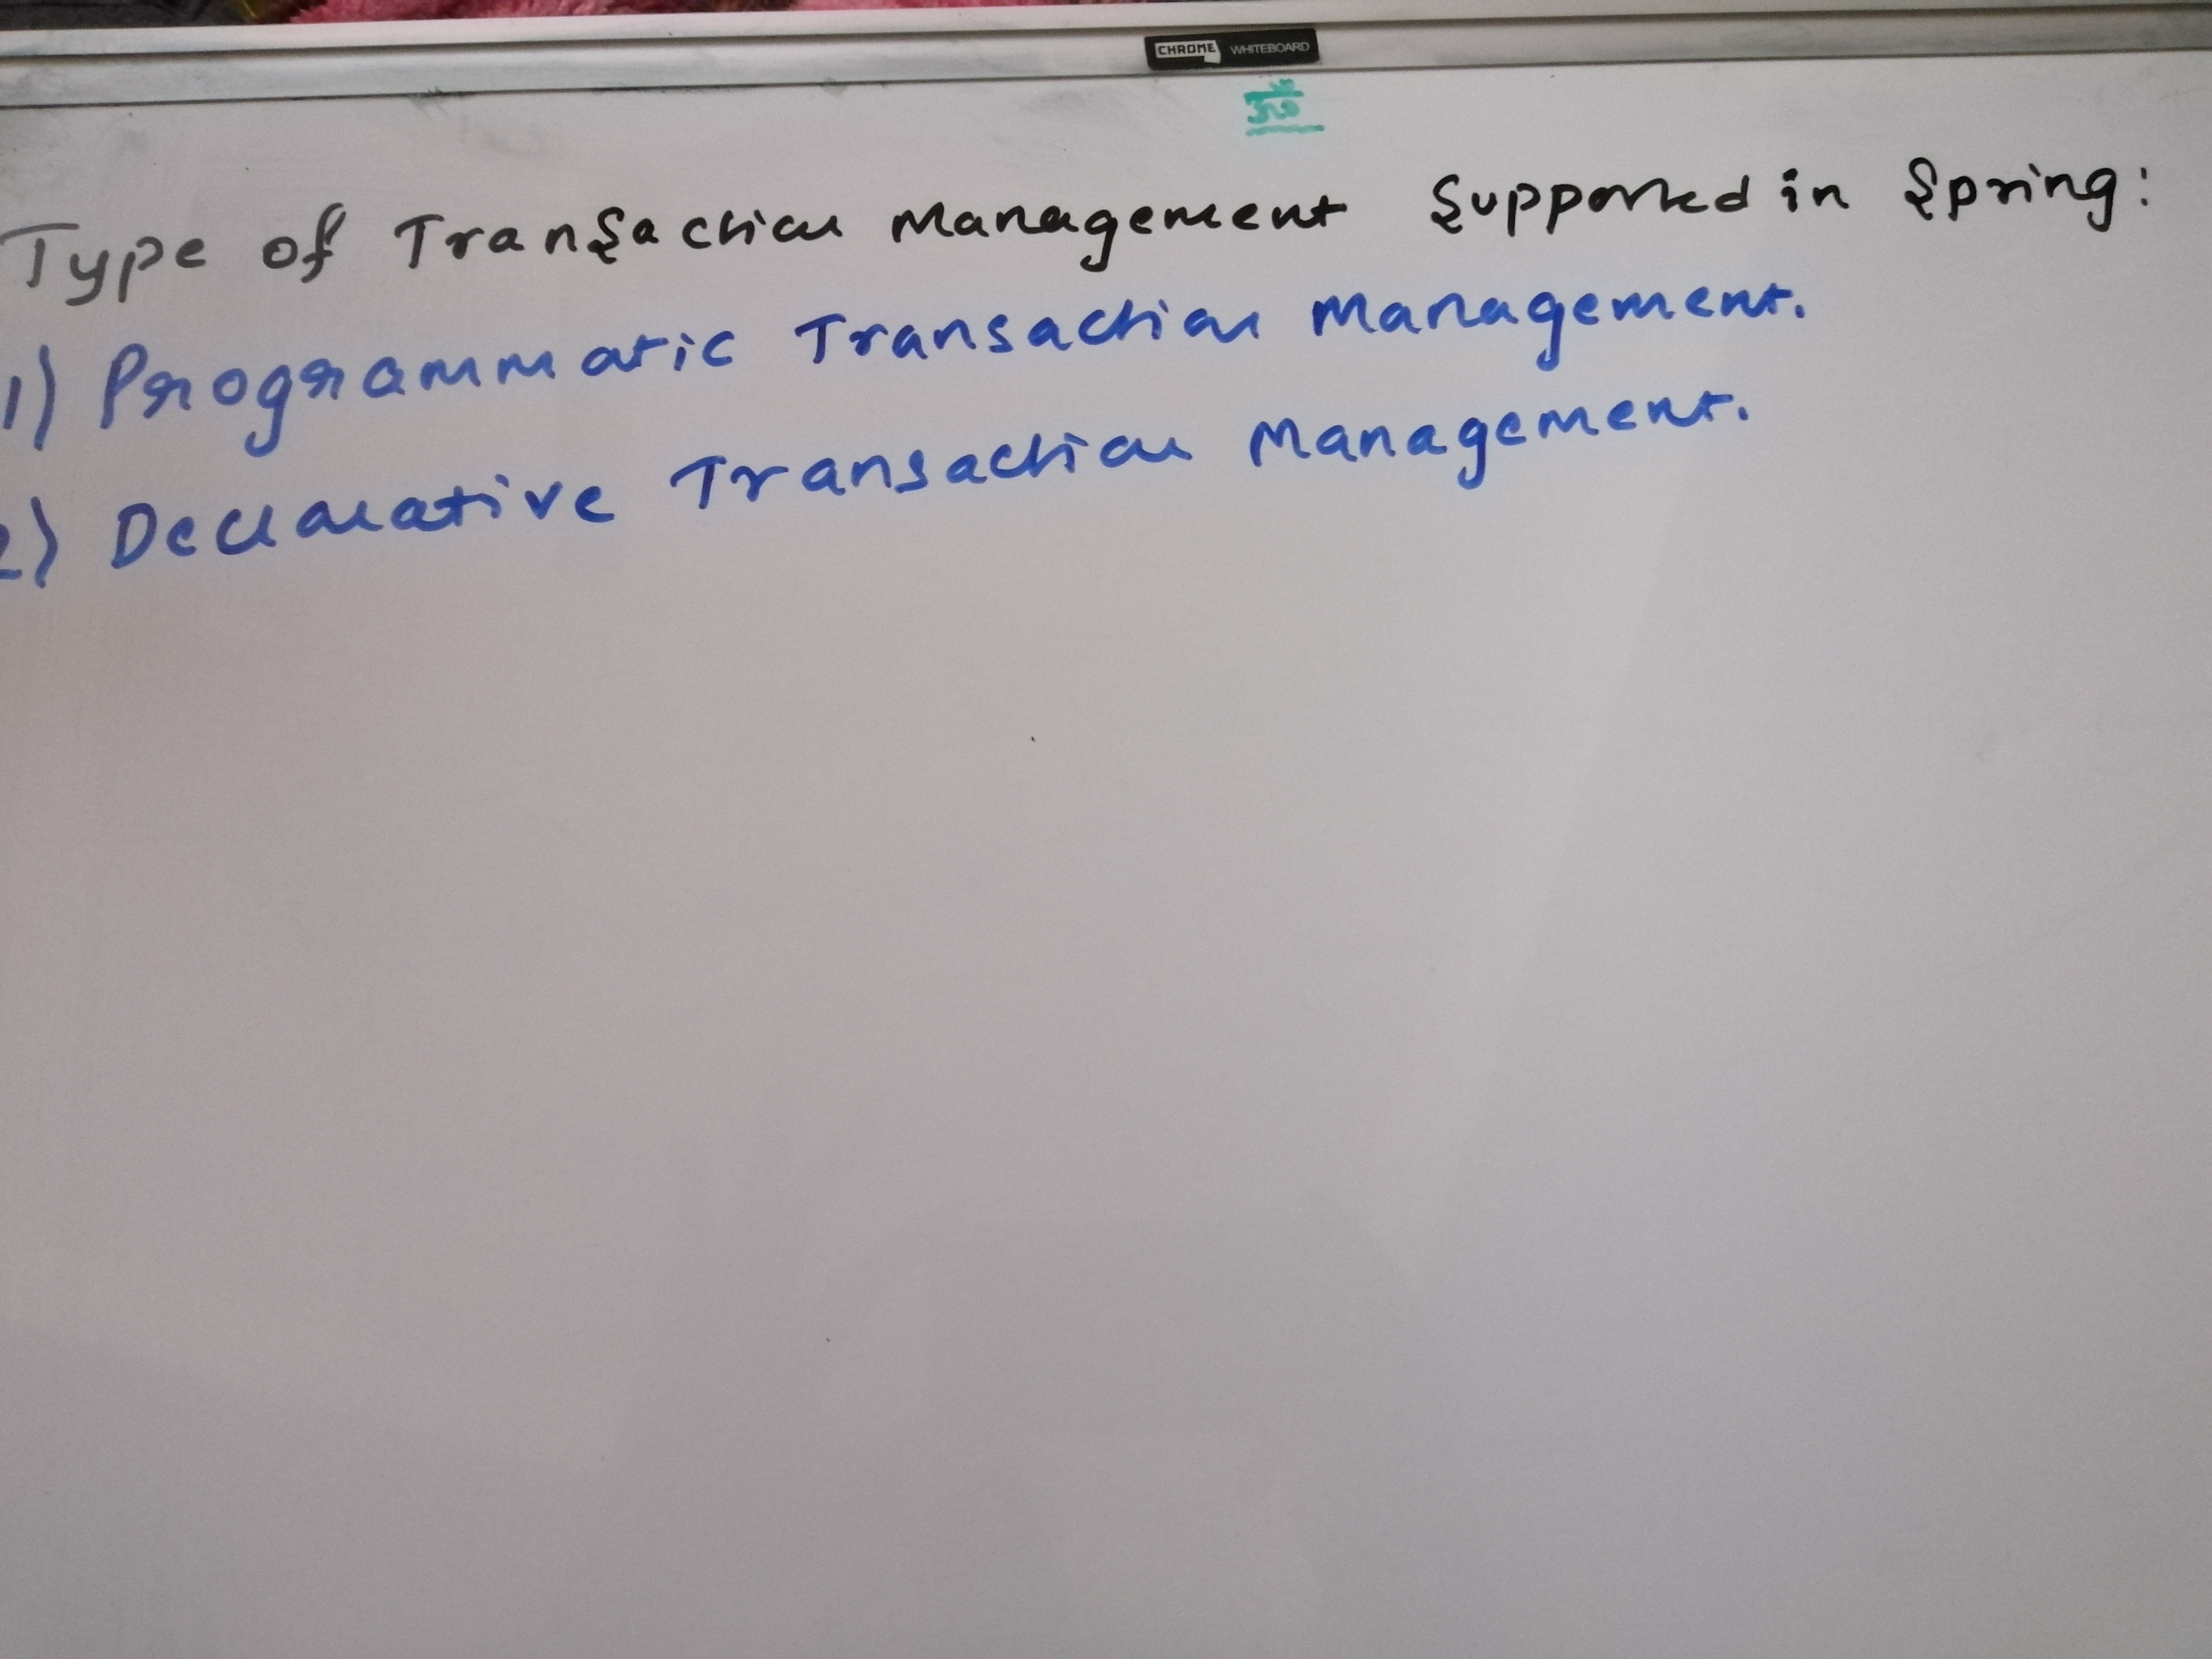 CHROME WHITEBOARD
Type of Transaction Management Supported in Spring:
1) Programmatic Transaction Management.
2) Declarative Transaction Management.